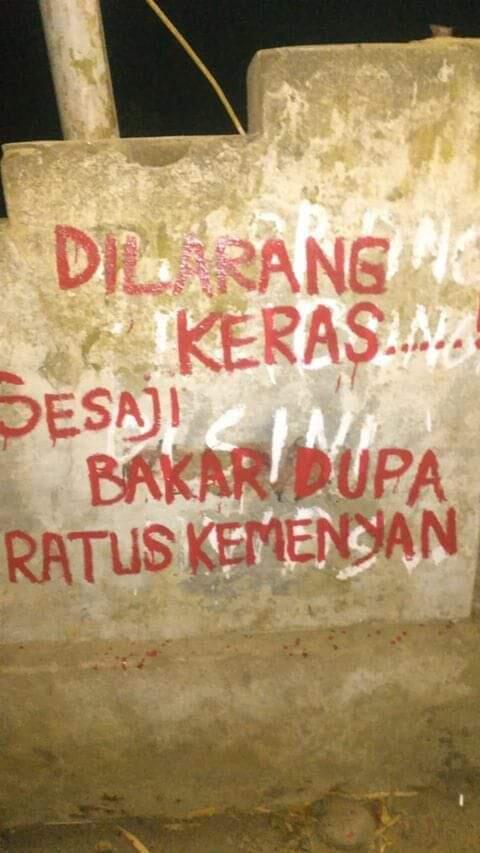 DILARANG
KERAS.....!
SESAJI
BAKAR DUPA
RATUS KEMENYAN
DISINI